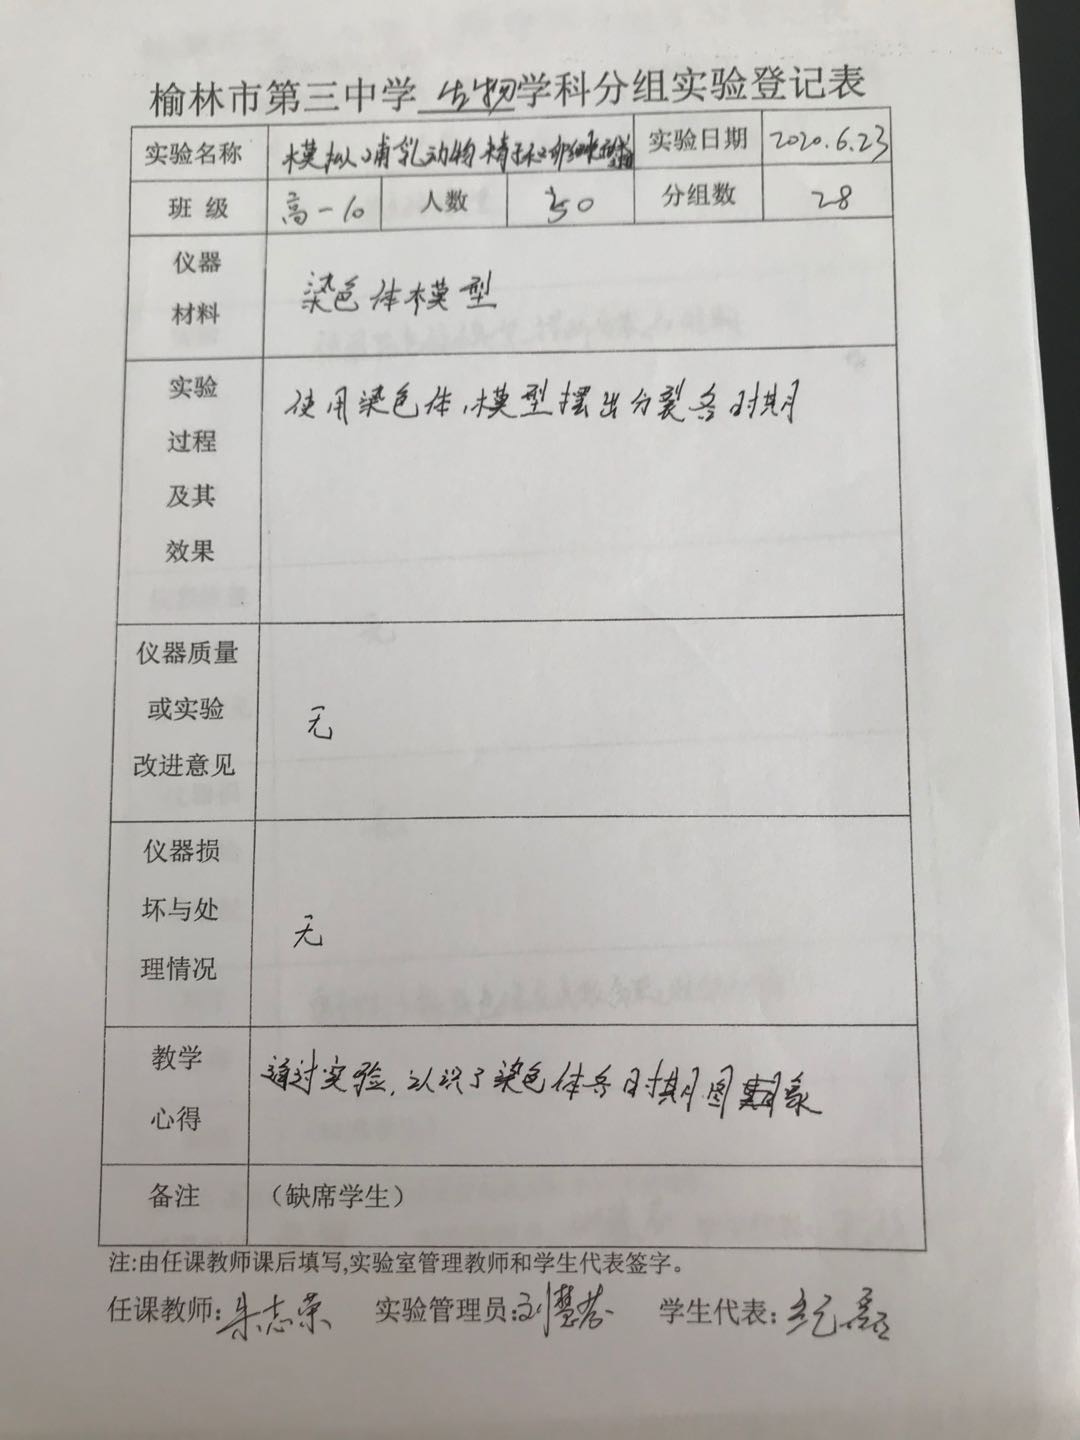 榆林市第三中学 生物 学科分组实验登记表
实验名称 模拟哺乳动物精子和卵细胞 实验日期 2020.6.23
班 级 高一10 人数 50 分组数 28
仪器
材料
染色体模型
实验
过程
及其
效果
使用染色体模型摆出分裂各时期
仪器质量
或实验
改进意见
无
仪器损
坏与处
理情况
无
教学
心得
通过实验,认识了染色体各时期图象
备注 （缺席学生）
注:由任课教师课后填写,实验室管理教师和学生代表签字。
任课教师: 朱志荣 实验管理员: 刘慧 学生代表: